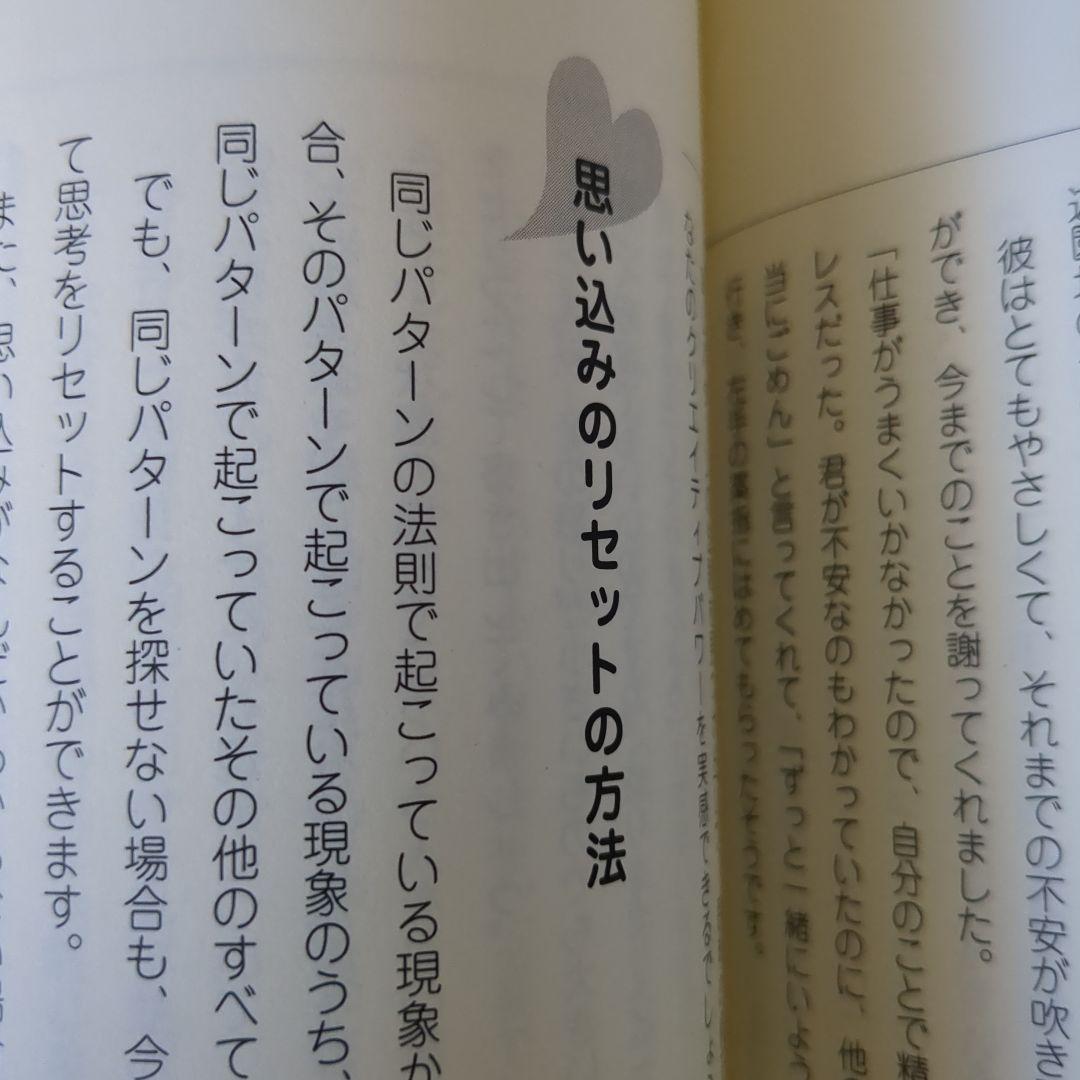 彼はとてもやさしくて、それまでの不安が吹き
ができ、今までのことを謝ってくれました。
「仕事がうまくいかなかったので、自分のことで精
レスだった。君が不安なのもわかっていたのに、他
当にごめん」と言ってくれて、「ずっと一緒にいよう
行き、左手の薬指にはめてもらったそうです。
なたのクリエイティブパワーを実感できるでしょ
思い込みのリセットの方法
同じパターンの法則で起こっている現象か
合、そのパターンで起こっている現象のうち、
同じパターンで起こっていたその他のすべて
でも、同じパターンを探せない場合も、今
て思考をリセットすることができます。